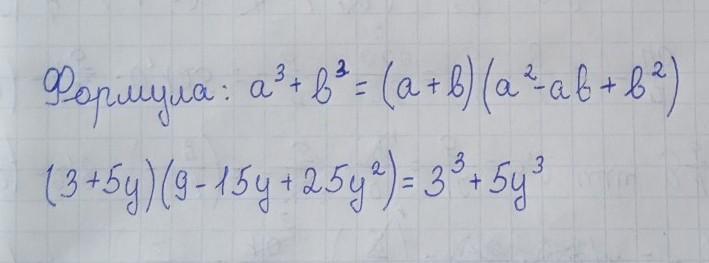 Формула: a³ + b³ = (a + b)(a² - ab + b²)
(3 + 5y)(9 - 15y + 25y²) = 3³ + 5y³